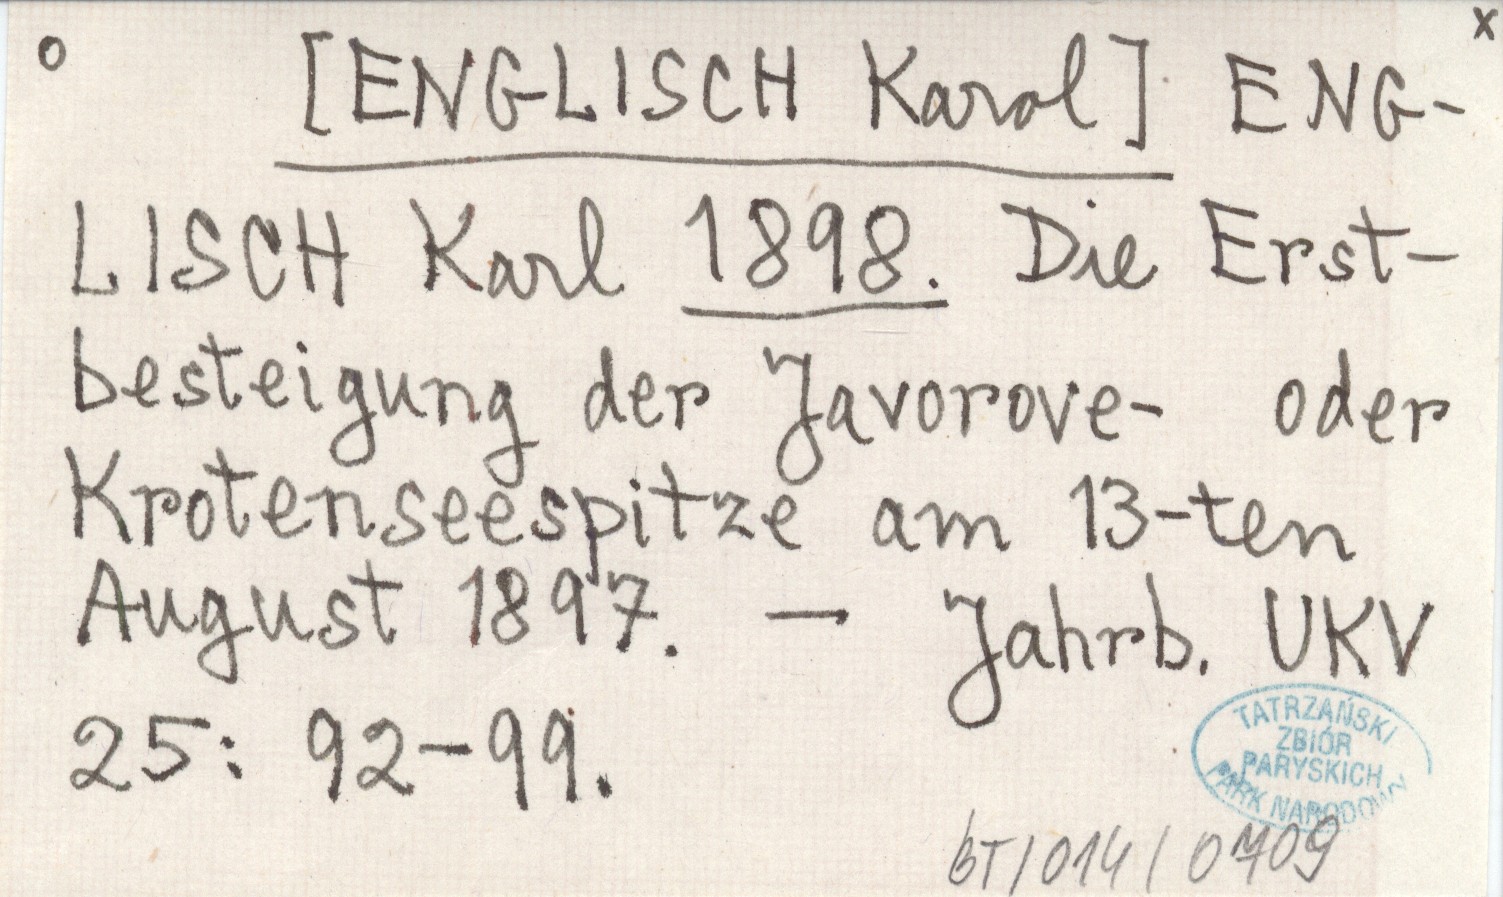 o [ENGLISCH Karol] ENG- x
LISCH Karl 1898. Die Erst-
besteigung der Javorove- oder
Krotenseespitze am 13-ten
August 1897. — Jahrb. UKV
25: 92-99.
TATRZAŃSKI
ZBIÓR
PARYSKICH
PARK NARODOWY
BT/014/0709